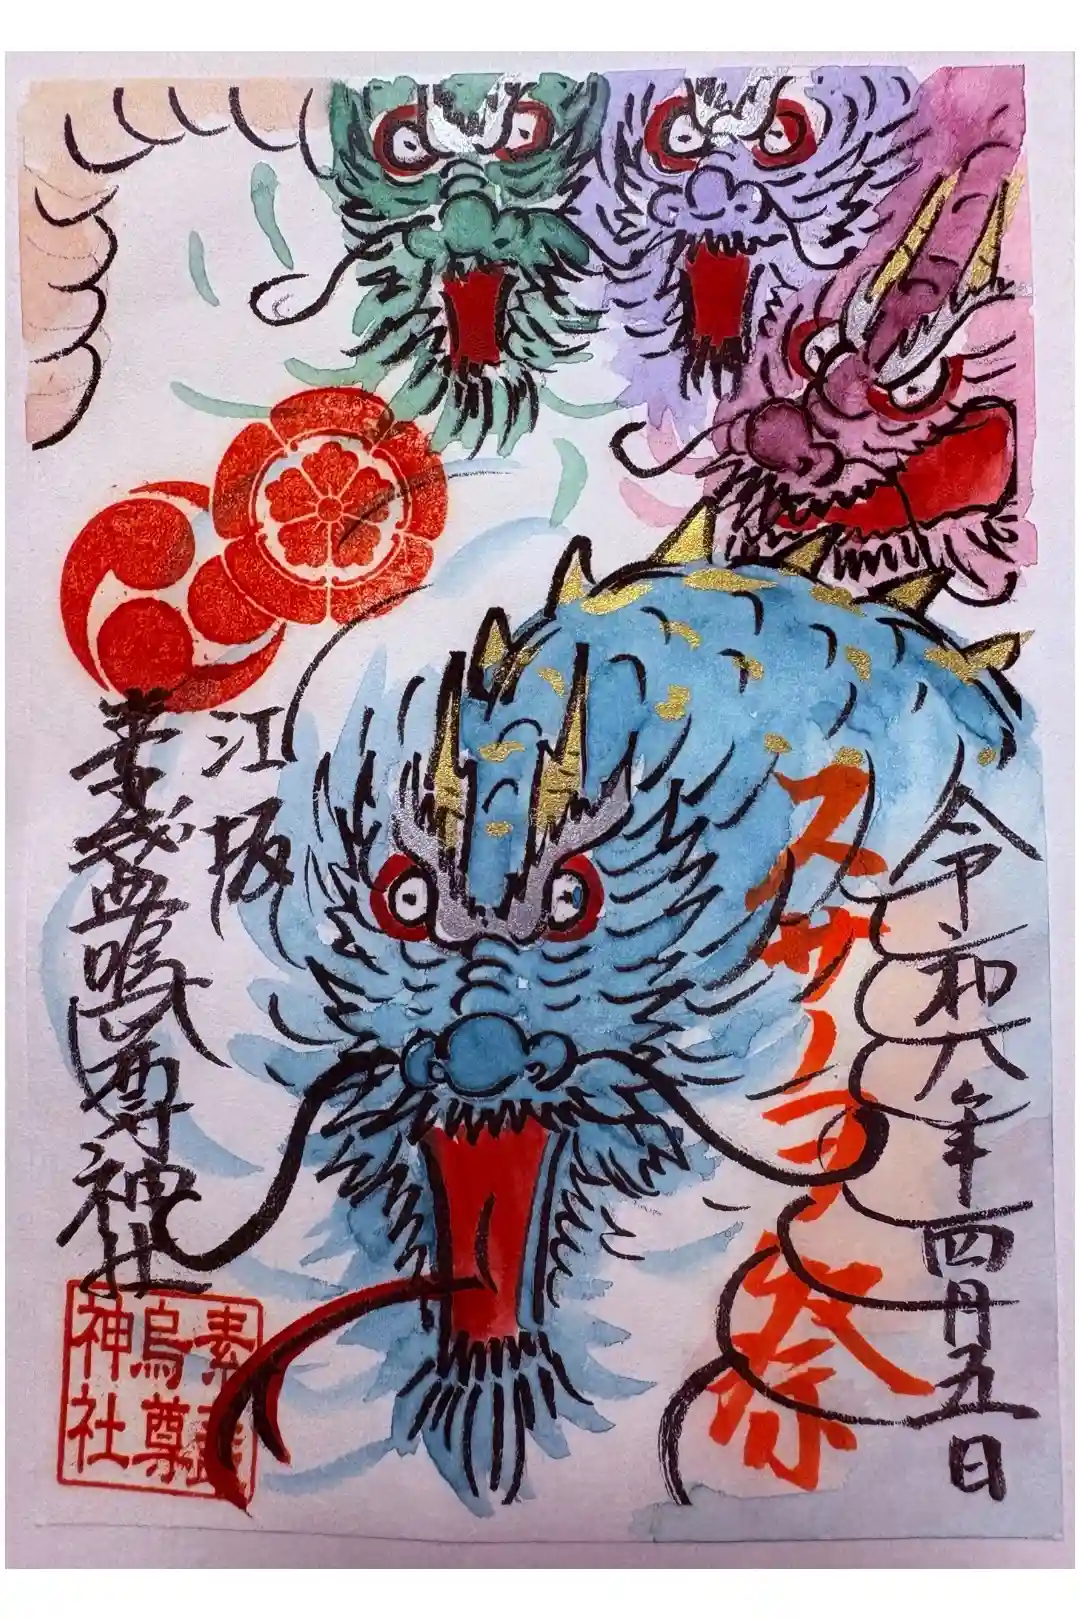 令和六年四月五日
スサノヲ祭
江坂
素盞嗚尊神社
素盞
烏尊
神社